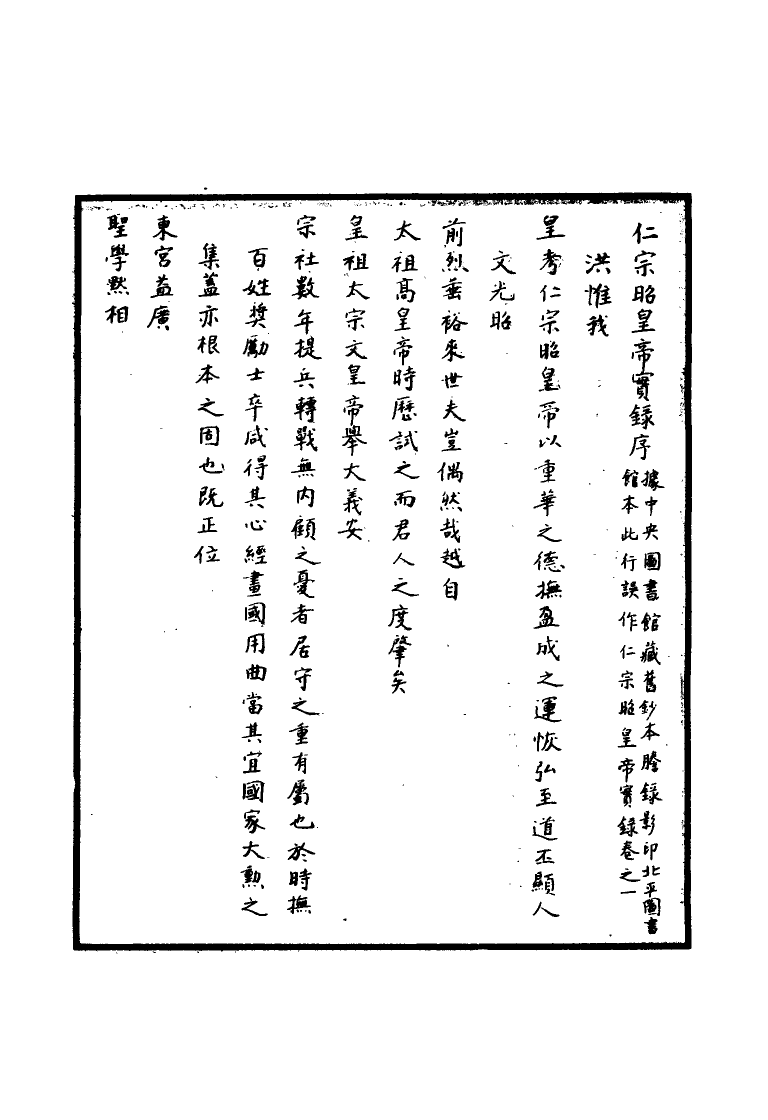 仁宗昭皇帝實錄序
據中央圖書館藏舊鈔本謄錄影印北平圖書
館本此行誤作仁宗昭皇帝實錄卷之一
洪惟我
皇考仁宗昭皇帝以重華之德撫盈成之運恢弘至道丕顯人
文光昭
前烈垂裕來世夫豈偶然哉越自
太祖高皇帝時歷試之而君人之度肇矣
皇祖太宗文皇帝舉大義安
宗社數年提兵轉戰無內顧之憂者居守之重有屬也於時撫
百姓獎勵士卒咸得其心經畫國用曲當其宜國家大勲之
集蓋亦根本之固也既正位
東宮益廣
聖學黙相